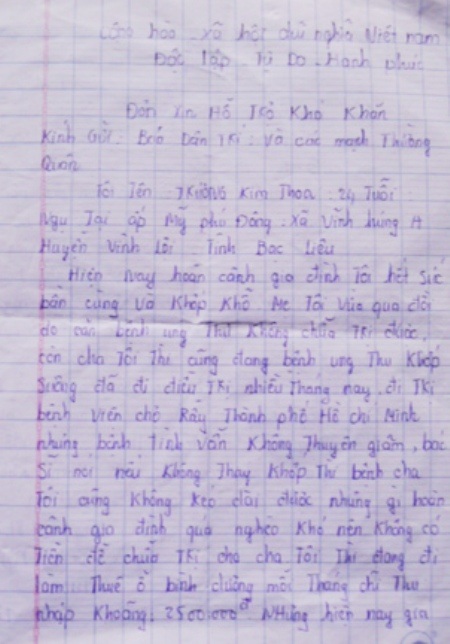 Cộng hòa xã hội chủ nghĩa Việt nam
Độc Lập . Tự Do . Hạnh phúc
Đơn Xin Hỗ Trợ Khó Khăn
Kính Gửi : Báo Dân Trí . Và các mạnh Thường
Quân
Tôi Tên : TRƯƠNG Kim Thoa . 24 Tuổi
Ngụ Tại ấp Mỹ phú Đông . Xã Vĩnh hưng A
Huyện Vĩnh Lợi . Tỉnh Bạc Liêu
Hiện Nay hoàn cảnh gia đình Tôi hết Sức
bần cùng Và Khốp Khổ . Mẹ Tôi Vừa qua đời
do căn bệnh ung Thư Không chữa Trị được,
còn cha Tôi Thì cũng đang bệnh ung Thư Khớp
Xương đã đi điều Trị nhiều Tháng nay . đi Trị
bệnh Viện chợ Rẫy Thành phố Hồ chí Minh
nhưng bệnh tình vẫn Không Thuyên giảm , bác
Sĩ nói nếu Không Thay Khớp Thì bệnh cha
Tôi cũng Không Kéo dài được nhưng gì hoàn
cảnh gia đình quá nghèo Khó nên Không có
Tiền để chữa Trị cho cha Tôi Thì đang đi
làm Thuê ở bình dương mỗi Tháng chỉ Thu
nhập Khoảng : 2500.000đ Nhưng hiện nay gia